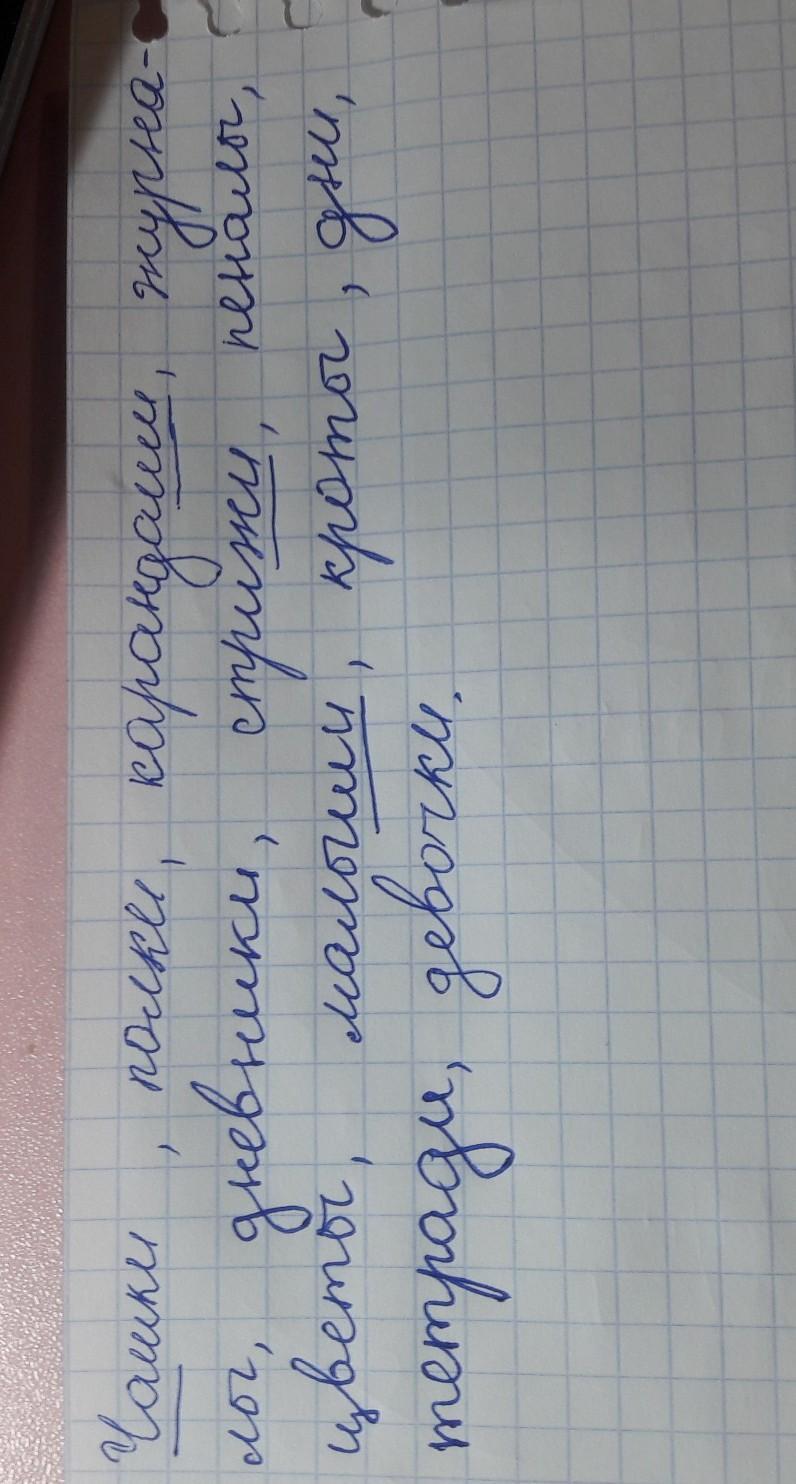 Чашки, полки, карандаши, журна-
лы, дневники, стрижи, пеналы,
цветы, малыши, кроты, дни,
тетради, девочки.